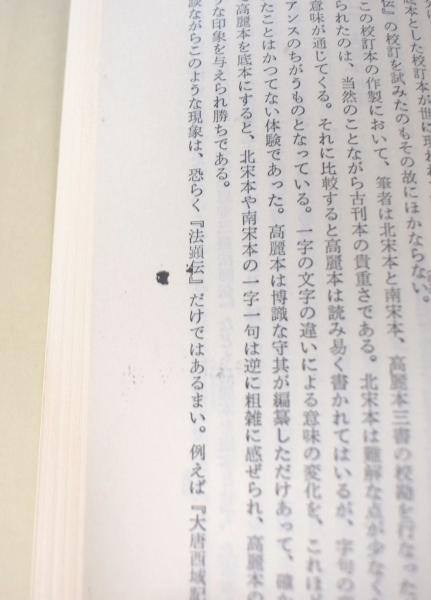 底本とした校訂本が世に現われ
伝』の校訂を試みたのもその故にほかならない。
この校訂本の作製において、筆者は北宋本と南宋本、高麗本三書の校勘を行なった
られたのは、当然のことながら古刊本の貴重さである。北宋本は難解な点が少なく
意味が通じてくる。それに比較すると高麗本は読み易く書かれてはいるが、字句の
アンスのちがうものとなっている。一字の文字の違いによる意味の変化を、これほど
たことはかつてない体験であった。高麗本は博識な守其が編纂しただけあって、確か
と高麗本を底本にすると、北宋本や南宋本の一字一句は逆に粗雑に感ぜられ、高麗本の
な印象を与えられ勝ちである。
談ながらこのような現象は、恐らく『法顕伝』だけではあるまい。例えば『大唐西域記